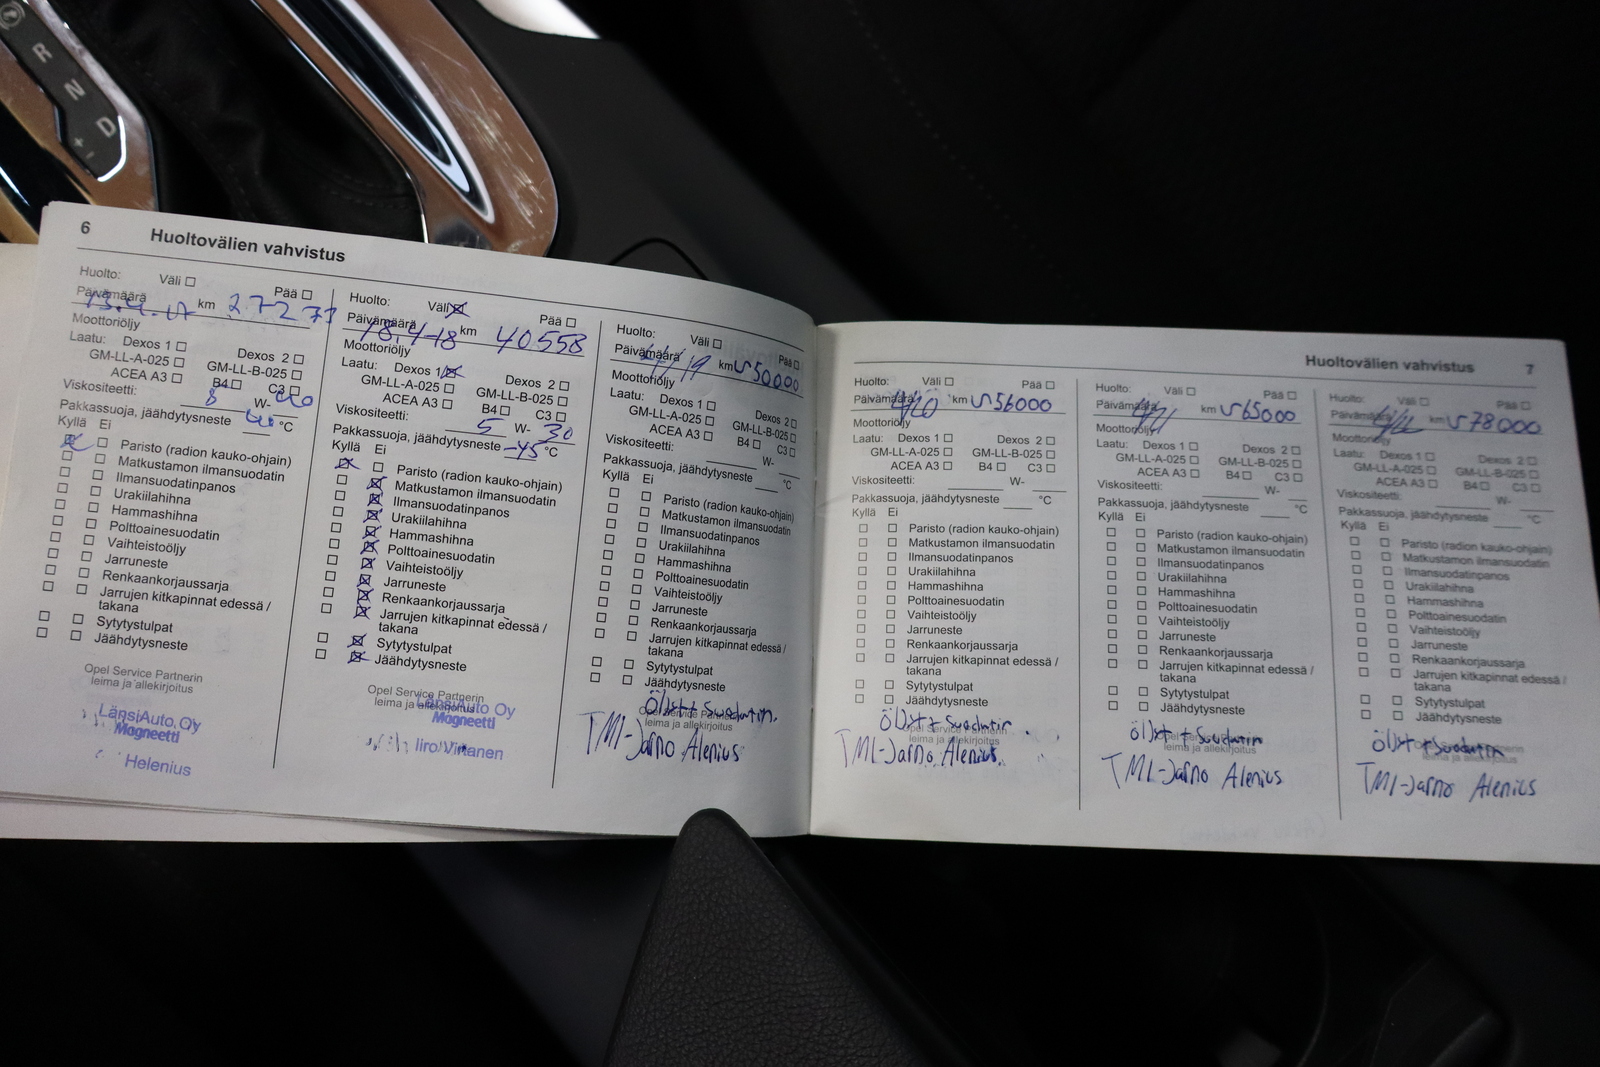 R
N
D
+ -
6
Huoltovälien vahvistus
Huolto: Väli Pää
Päivämäärä km 27273
Moottoriöljy
Laatu: Dexos 1 Dexos 2
GM-LL-A-025 GM-LL-B-025
ACEA A3 B4 C3
Viskositeetti: W-
Pakkassuoja, jäähdytysneste °C
Kyllä Ei
Paristo (radion kauko-ohjain)
Matkustamon ilmansuodatin
Ilmansuodatinpanos
Urakiilahihna
Hammashihna
Polttoainesuodatin
Vaihteistoöljy
Jarruneste
Renkaankorjaussarja
Jarrujen kitkapinnat edessä /
takana
Sytytystulpat
Jäähdytysneste
Opel Service Partnerin
leima ja allekirjoitus
LänsiAuto Oy
Magneetti
Helenius
Huolto: Väli Pää
Päivämäärä 18.4-18 km 40558
Moottoriöljy
Laatu: Dexos 1 Dexos 2
GM-LL-A-025 GM-LL-B-025
ACEA A3 B4 C3
Viskositeetti: 5 W- 30
Pakkassuoja, jäähdytysneste -45 °C
Kyllä Ei
Paristo (radion kauko-ohjain)
Matkustamon ilmansuodatin
Ilmansuodatinpanos
Urakiilahihna
Hammashihna
Polttoainesuodatin
Vaihteistoöljy
Jarruneste
Renkaankorjaussarja
Jarrujen kitkapinnat edessä /
takana
Sytytystulpat
Jäähdytysneste
Opel Service Partnerin
leima ja allekirjoitus
LänsiAuto Oy
Magneetti
Iiro Virtanen
Huolto: Väli Pää
Päivämäärä 4/19 km ~50000
Moottoriöljy
Laatu: Dexos 1 Dexos 2
GM-LL-A-025 GM-LL-B-025
ACEA A3 B4 C3
Viskositeetti: W-
Pakkassuoja, jäähdytysneste °C
Kyllä Ei
Paristo (radion kauko-ohjain)
Matkustamon ilmansuodatin
Ilmansuodatinpanos
Urakiilahihna
Hammashihna
Polttoainesuodatin
Vaihteistoöljy
Jarruneste
Renkaankorjaussarja
Jarrujen kitkapinnat edessä /
takana
Sytytystulpat
Jäähdytysneste
Opel Service Partnerin
leima ja allekirjoitus
TMI-Jarno Alenius
Huoltovälien vahvistus 7
Huolto: Väli Pää
Päivämäärä 4/20 km ~56000
Moottoriöljy
Laatu: Dexos 1 Dexos 2
GM-LL-A-025 GM-LL-B-025
ACEA A3 B4 C3
Viskositeetti: W-
Pakkassuoja, jäähdytysneste °C
Kyllä Ei
Paristo (radion kauko-ohjain)
Matkustamon ilmansuodatin
Ilmansuodatinpanos
Urakiilahihna
Hammashihna
Polttoainesuodatin
Vaihteistoöljy
Jarruneste
Renkaankorjaussarja
Jarrujen kitkapinnat edessä /
takana
Sytytystulpat
Jäähdytysneste
Opel Service Partnerin
leima ja allekirjoitus
TMI-Jarno Alenius
Huolto: Väli Pää
Päivämäärä 4/21 km ~65000
Moottoriöljy
Laatu: Dexos 1 Dexos 2
GM-LL-A-025 GM-LL-B-025
ACEA A3 B4 C3
Viskositeetti: W-
Pakkassuoja, jäähdytysneste °C
Kyllä Ei
Paristo (radion kauko-ohjain)
Matkustamon ilmansuodatin
Ilmansuodatinpanos
Urakiilahihna
Hammashihna
Polttoainesuodatin
Vaihteistoöljy
Jarruneste
Renkaankorjaussarja
Jarrujen kitkapinnat edessä /
takana
Sytytystulpat
Jäähdytysneste
Opel Service Partnerin
leima ja allekirjoitus
TMI-Jarno Alenius
Huolto: Väli Pää
Päivämäärä km ~78000
Moottoriöljy
Laatu: Dexos 1 Dexos 2
GM-LL-A-025 GM-LL-B-025
ACEA A3 B4 C3
Viskositeetti: W-
Pakkassuoja, jäähdytysneste °C
Kyllä Ei
Paristo (radion kauko-ohjain)
Matkustamon ilmansuodatin
Ilmansuodatinpanos
Urakiilahihna
Hammashihna
Polttoainesuodatin
Vaihteistoöljy
Jarruneste
Renkaankorjaussarja
Jarrujen kitkapinnat edessä /
takana
Sytytystulpat
Jäähdytysneste
Opel Service Partnerin
leima ja allekirjoitus
TMI-Jarno Alenius